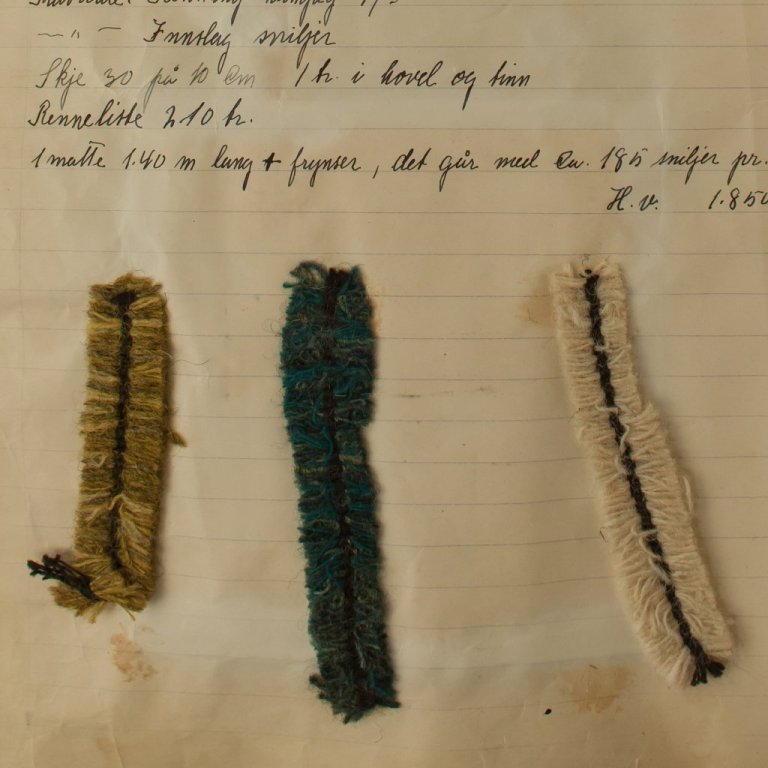 —"— Innslag sniljer
Skje 30 på 10 cm 1 tr. i hovel og tinn
Renneliste 210 tr.
1 matte 1.40 m lang + frynser, det går med ca. 185 sniljer pr.
H.v. 1.850